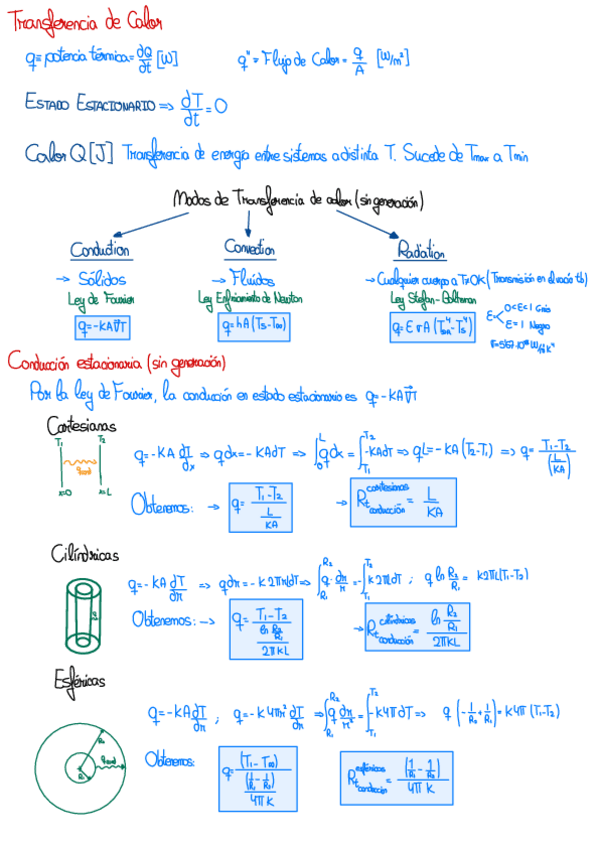 Transferencia de Calor
q = potencia térmica = dQ/dt [W]    q" = Flujo de Calor = q/A [W/m²]
ESTADO ESTACIONARIO => dT/dt = 0
Calor Q [J] Transferencia de energía entre sistemas a distinta T. Sucede de Tmax a Tmin
Modos de Transferencia de calor (sin generación)
Conduction    Convection    Radiation
→ Sólidos    → Fluidos    → Cualquier cuerpo a T≠0K (Transmisión en el vacío tb)
Ley de Fourier    Ley Enfriamiento de Newton    Ley Stefan-Boltzman    0<ε<1 Gris
q=-KA∇T    q=hA(Ts-T∞)    ε=1 Negro
Conducción estacionaria (sin generación)
Por la ley de Fourier, la conducción en estado estacionario es q=-KA∇T
Cartesianas
T₁ T₂    q=-KA dT/dx => q dx = -KA dT => ∫₀ᴸ q dx = ∫_T₁^T₂ -KA dT => qL = -KA (T₂-T₁) => q = (T₁-T₂)/(L/KA)
qcond
x=0 x=L    Obtenemos: → q = (T₁-T₂)/(L/KA)    → Rt conducción cartesianas = L/KA
Cilíndricas
q=-KA dT/dr => q dr = -K2πrL dT => ∫_R₁^R₂ q dr/r = ∫_T₁^T₂ -K2πL dT ; q ln R₂/R₁ = K2πL(T₁-T₂)
Obtenemos: → q = (T₁-T₂)/(ln(R₂/R₁)/2πKL)    → Rt conducción cilíndricas = ln(R₂/R₁)/2πKL
Esféricas
q=-KA dT/dr ; q=-K4πr² dT/dr => ∫_R₁^R₂ q dr/r² = ∫_T₁^T₂ -K4π dT => q (-1/R₂+1/R₁) = K4π (T₁-T₂)
Obtenemos:    q = (T₁-T∞)/((1/R₁-1/R₂)/4πK)    Rt conducción esféricas = (1/R₁-1/R₂)/4πK
qcond